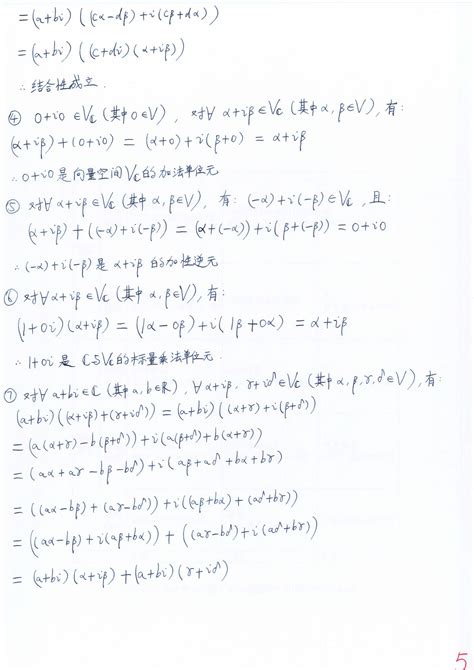 = (a+bi) ((cα-dβ) + i(cβ+dα))
= (a+bi) ((c+di) (α+iβ))
∴ 结合性成立.
④ 0+i0 ∈ V_C (其中 0∈V), 对∀ α+iβ ∈ V_C (其中 α, β∈V), 有:
(α+iβ) + (0+i0) = (α+0) + i(β+0) = α+iβ
∴ 0+i0 是向量空间 V_C 的加法单位元
⑤ 对∀ α+iβ ∈ V_C (其中 α, β∈V), 有: (-α)+i(-β) ∈ V_C, 且:
(α+iβ) + ((-α)+i(-β)) = (α+(-α)) + i(β+(-β)) = 0+i0
∴ (-α)+i(-β) 是 α+iβ 的加性逆元
⑥ 对∀ α+iβ ∈ V_C (其中 α, β∈V), 有:
(1+0i)(α+iβ) = (1α-0β) + i(1β+0α) = α+iβ
∴ 1+0i 是 ℂ与V_C的标量乘法单位元.
⑦ 对∀ a+bi∈ℂ (其中 a, b∈ℝ), ∀ α+iβ, γ+iδ∈V_C (其中 α, β, γ, δ∈V), 有:
(a+bi)((α+iβ)+(γ+iδ)) = (a+bi)((α+γ)+i(β+δ))
= (a(α+γ)-b(β+δ)) + i(a(β+δ)+b(α+γ))
= (aα+aγ-bβ-bδ) + i(aβ+aδ+bα+bγ)
= ((aα-bβ)+(aγ-bδ)) + i((aβ+bα)+(aδ+bγ))
= ((aα-bβ)+i(aβ+bα)) + ((aγ-bδ)+i(aδ+bγ))
= (a+bi)(α+iβ) + (a+bi)(γ+iδ)
5